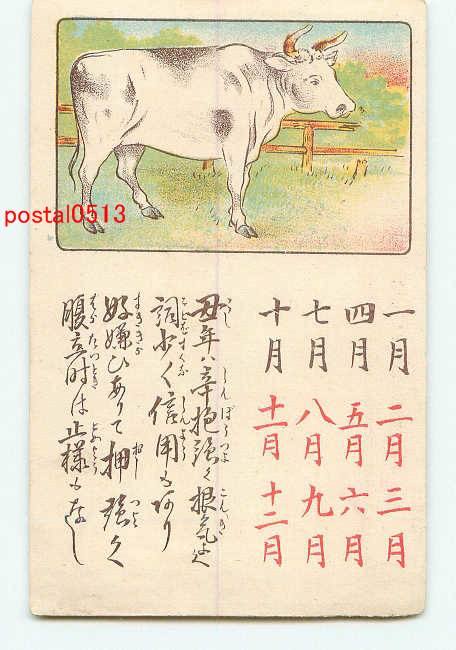 postal0513
一月 二月 三月
四月 五月 六月
七月 八月 九月
十月 十一月 十二月
丑年ハ辛抱強く根気よく
詞少く信用もあり
好嫌ひありて押強く
腹立時は止様もなし